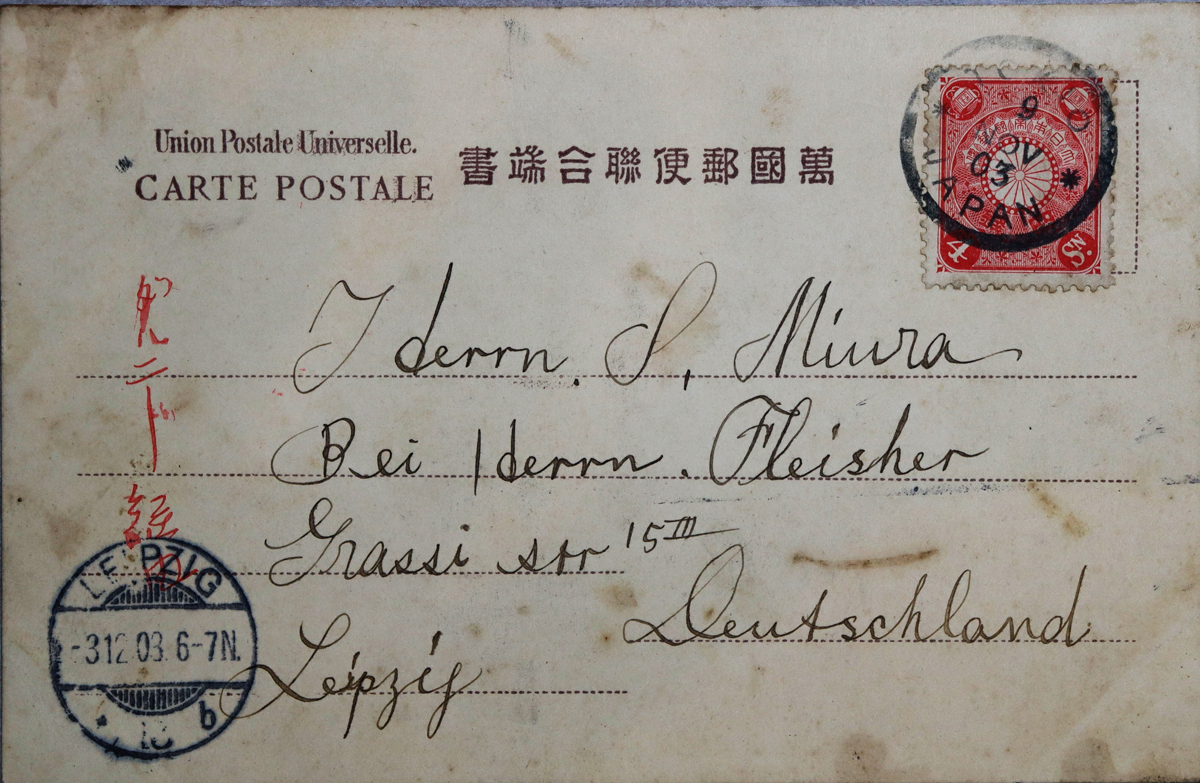 Union Postale Universelle.
CARTE POSTALE
書端合聯便郵國萬
9
NOV
03
JAPAN
4
Sn.
Herrn. S, Miura
Bei Herrn. Fleisher
Grassi str 15 III
Deutschland
Leipzig
LEIPZIG
-3.12.03.6-7N.
b